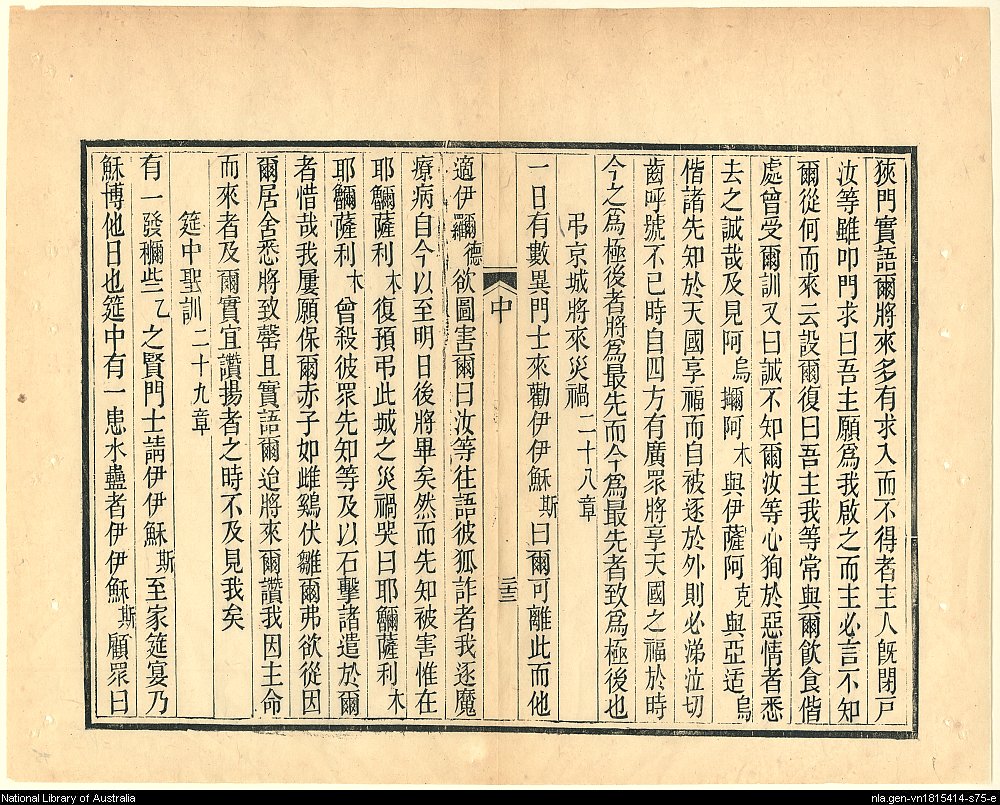 狹門實語爾將來多有求入而不得者主人旣閉戸
汝等雖叩門求曰吾主願爲我啟之而主必言不知
爾從何而來云設爾復曰吾主我等常與爾飲食偕
處曾受爾訓又曰誠不知爾汝等心狥於惡情者悉
去之誠哉及見阿烏擟阿木與伊薩阿克與亞适烏
偕諸先知於天國享福而自被逐於外則必涕泣切
齒呼號不已時自四方有廣眾將享天國之福於時
今之爲極後者將爲最先而今爲最先者致爲極後也
弔京城將來災禍二十八章
一日有數異門士來勸伊伊穌斯曰爾可離此而他
中
二十三
適伊德欲圖害爾曰汝等往語彼狐詐者我逐魔
療病自今以至明日後將畢矣然而先知被害惟在
耶薩利木復預弔此城之災禍哭曰耶薩利木
耶薩利木曾殺彼眾先知等及以石擊諸遣於爾
者惜哉我屢願保爾赤子如雌鷄伏雛爾弗欲從因
爾居舍悉將致罄且實語爾迨將來爾讚我因主命
而來者及爾實宜讚揚者之時不及見我矣
筵中聖訓二十九章
有一發穪些乙之賢門士請伊伊穌斯至家筵宴乃
穌博他日也筵中有一患水蠱者伊伊穌斯顧眾曰
National Library of Australia
nla.gen-vn1815414-s75-e